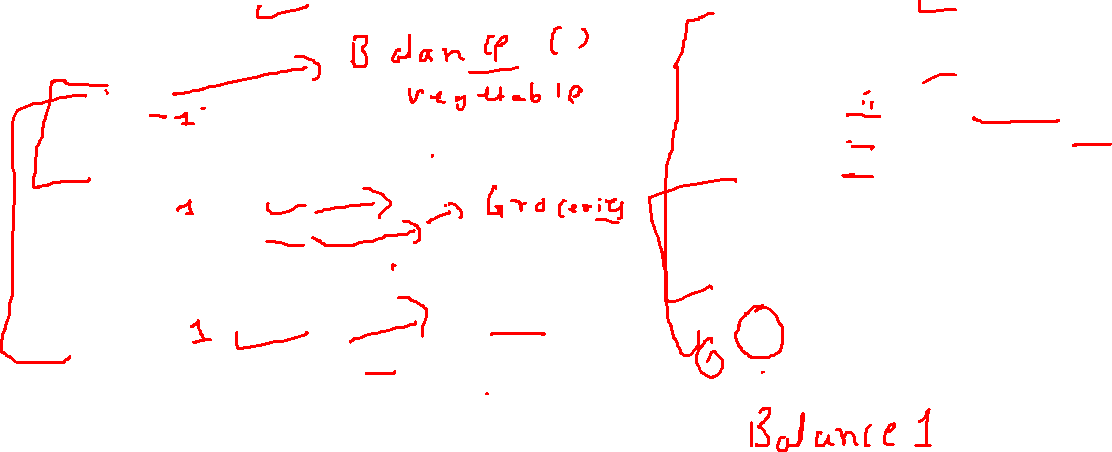 Balance ()
vegetable
-1
1 Groceries
1
Balance 1